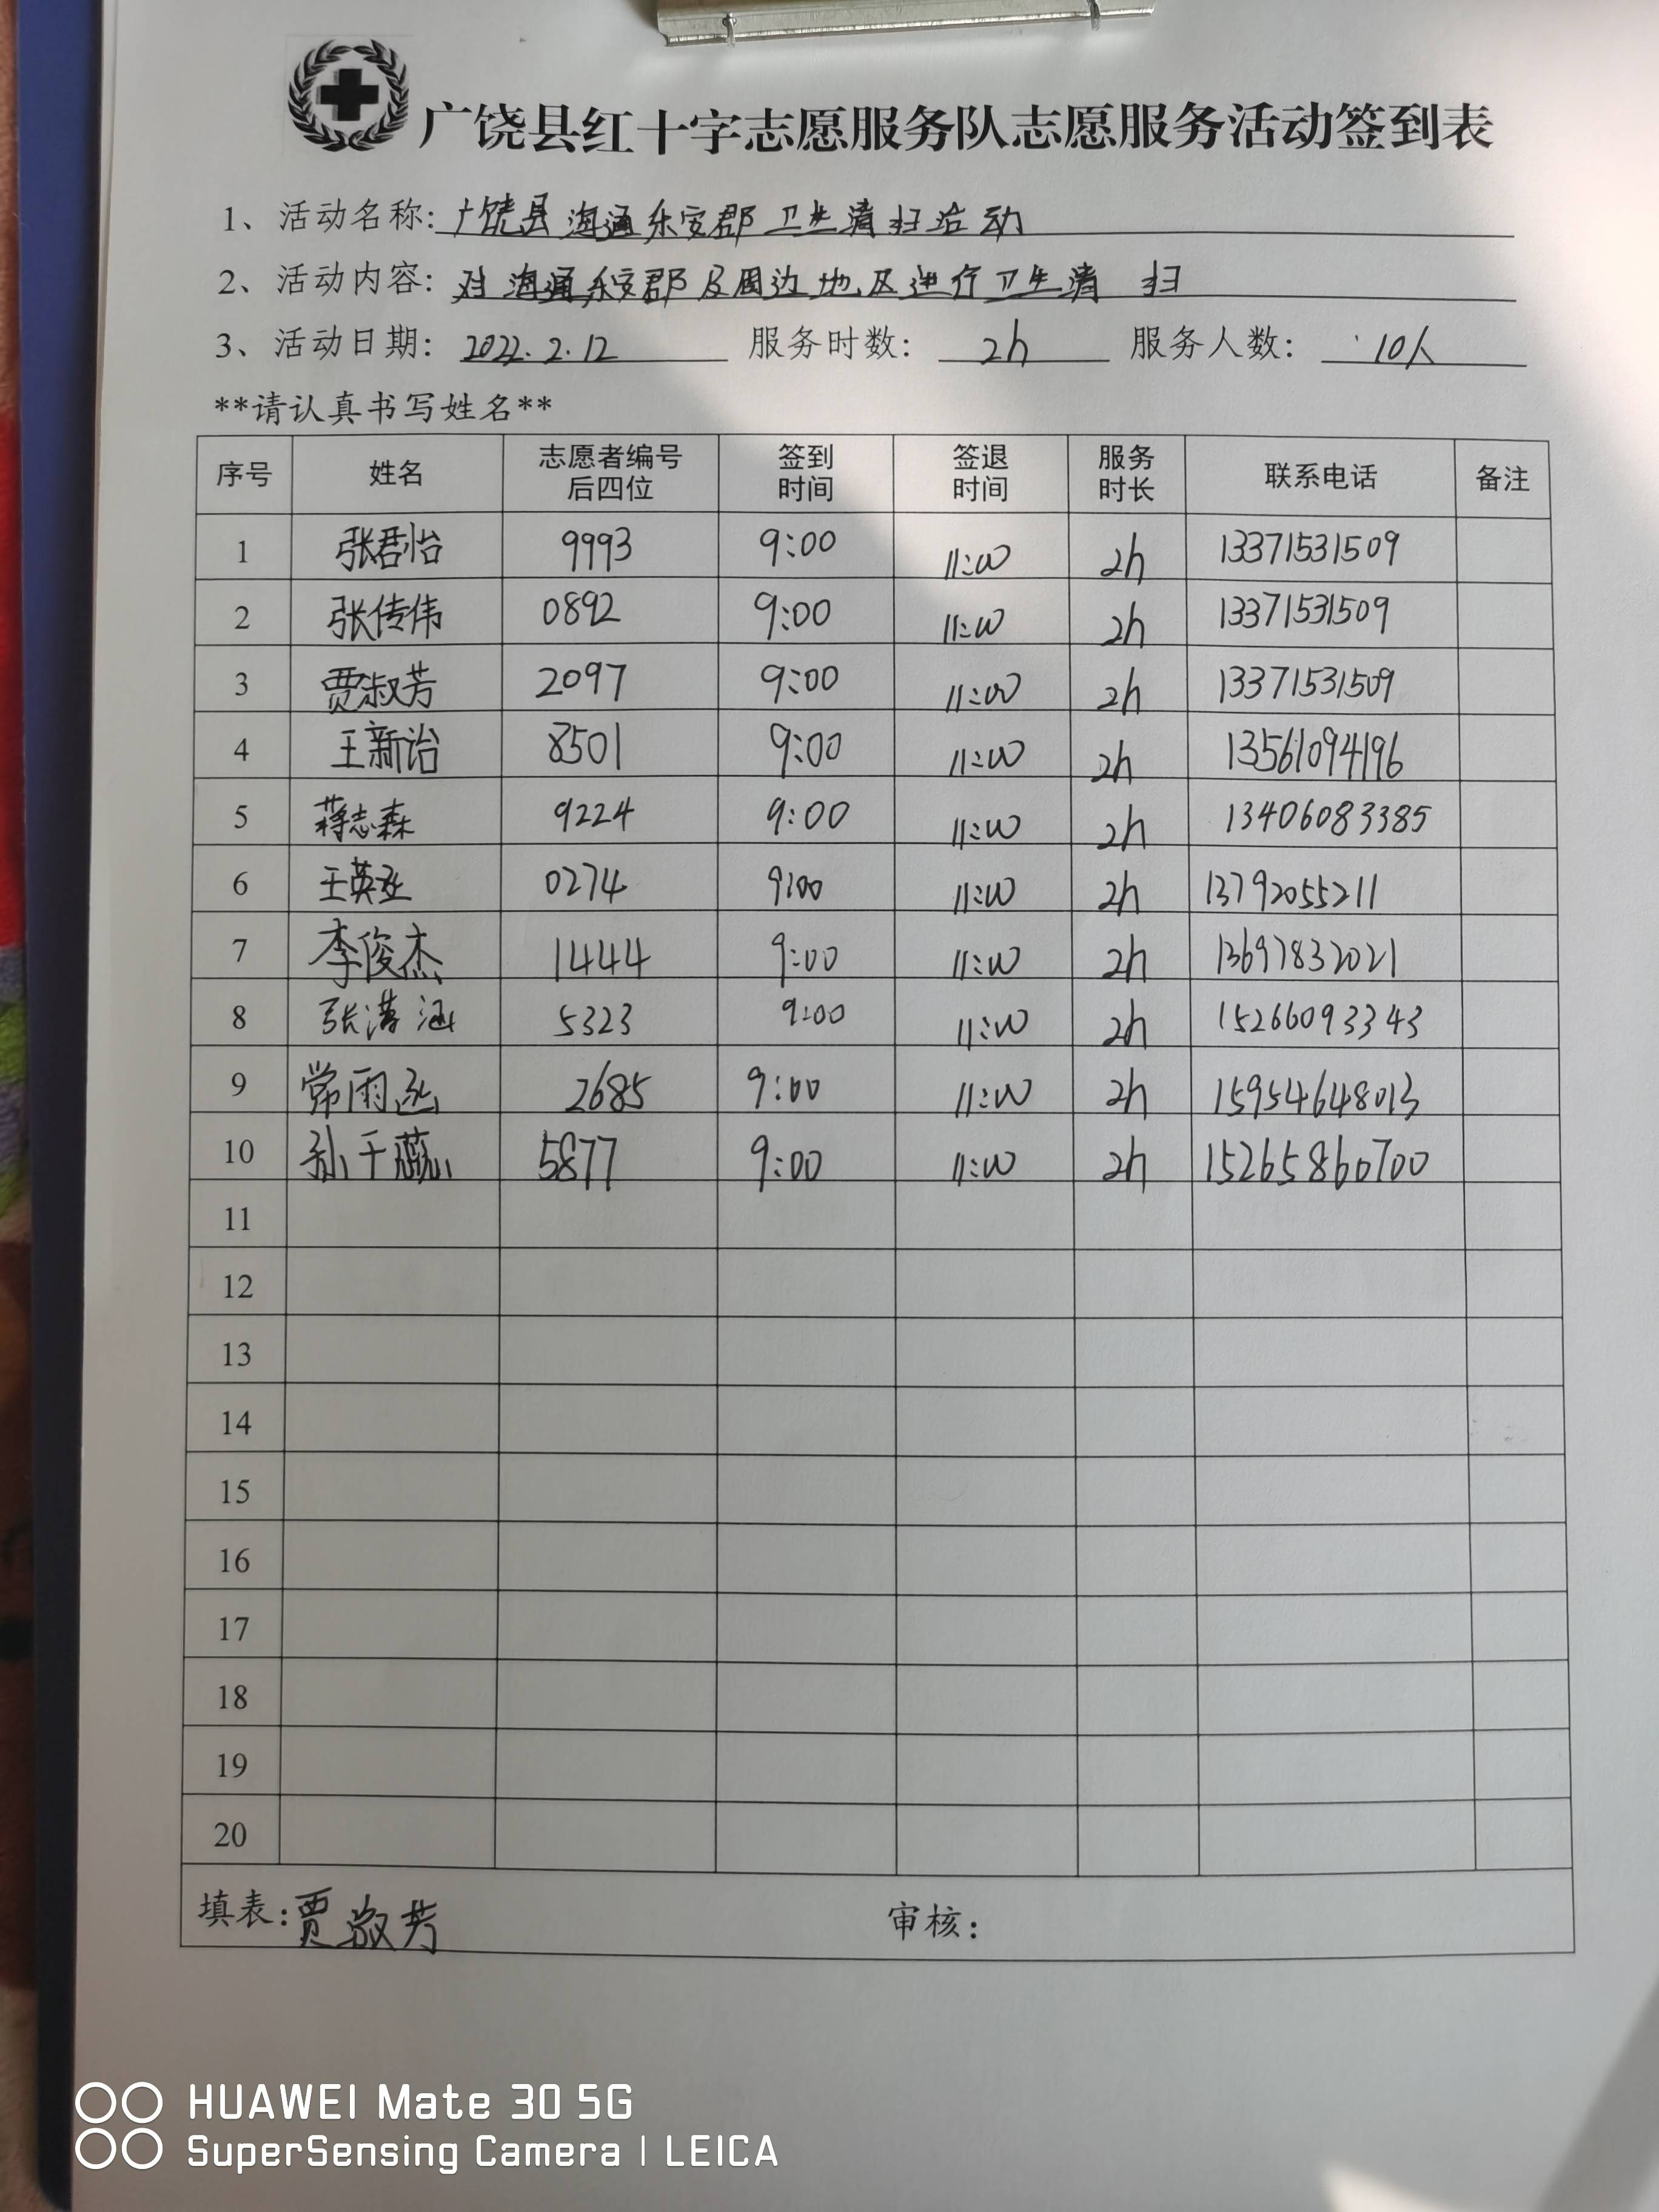 广饶县红十字志愿服务队志愿服务活动签到表
1、活动名称:广饶县海通乐安郡卫生清扫活动
2、活动内容:对海通乐安郡及周边地区进行卫生清扫
3、活动日期:2022.2.12 服务时数:2h 服务人数:10人
**请认真书写姓名**
序号 姓名 志愿者编号后四位 签到时间 签退时间 服务时长 联系电话 备注
1 张君怡 9993 9:00 11:00 2h 13371531509
2 张传伟 0892 9:00 11:00 2h 13371531509
3 贾淑芳 2097 9:00 11:00 2h 13371531509
4 王新诒 8501 9:00 11:00 2h 13561094196
5 蒋志森 9224 9:00 11:00 2h 13406083385
6 王英丞 0274 9:00 11:00 2h 13792055211
7 李俊杰 1444 9:00 11:00 2h 13697832021
8 张 涵 5323 9:00 11:00 2h 15266093343
9 常雨函 2685 9:00 11:00 2h 15954648013
10 孙千蕴 5877 9:00 11:00 2h 15265860700
11
12
13
14
15
16
17
18
19
20
填表:贾淑芳 审核:
HUAWEI Mate 30 5G
SuperSensing Camera | LEICA